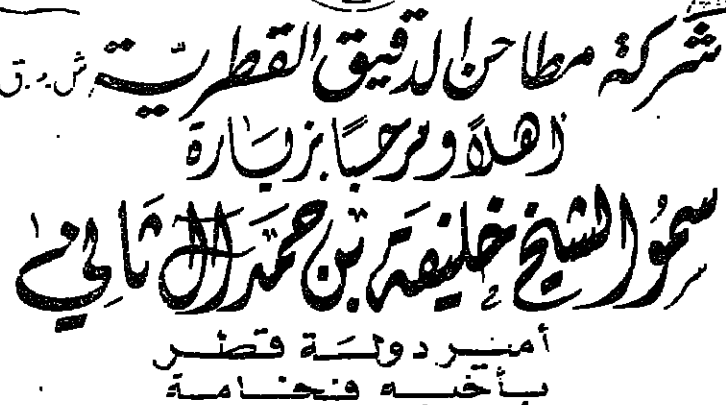 شركة مطاحن الدقيق القطرية ش.م.ق
أهلاً ومرحباً بزيارة
سمو الشيخ خليفة بن حمد آل ثاني
أمير دولة قطر
بأخيه فخامة